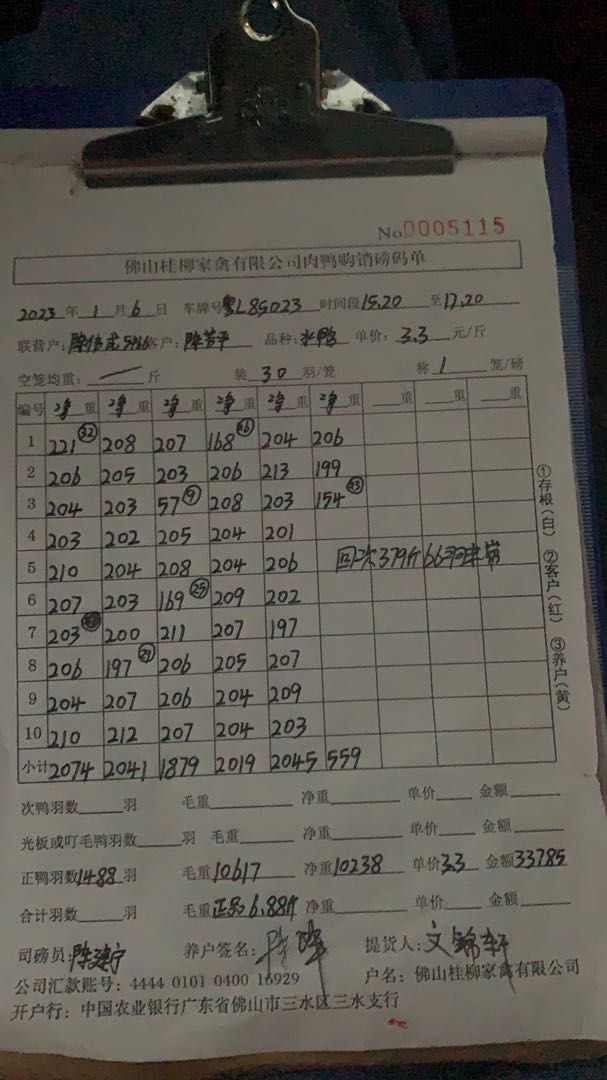 No 0005115
佛山桂柳家禽有限公司肉鸭购销磅码单
2023 年 1 月 6 日 车牌号 粤L85023 时间段 15.20 至 17.20
联营户: 客户: 陈芳平 品种: 单价: 3.3 元/斤
空笼均重: 斤 装 30 羽/笼 称 1 笼/磅
编号 净重 净重 净重 净重 净重 净重 重 重 重
1 221 32 208 207 168 26 204 206
2 206 205 203 206 213 199
3 204 203 57 9 208 203 154 23
4 203 202 205 204 201
5 210 204 208 204 206 379斤 66
6 207 203 169 25 209 202
7 203 200 211 207 197
8 206 197 27 206 205 207
9 204 207 206 204 209
10 210 212 207 204 203
小计 2074 2041 1879 2019 2045 559
①存根(白) ②客户(红) ③养户(黄)
次鸭羽数 羽 毛重 净重 单价 金额
光板或叮毛鸭羽数 羽 毛重 净重 单价 金额
正鸭羽数 1488 羽 毛重 10617 净重 10238 单价 3.3 金额 33785
合计羽数 羽 毛重 正品6.88斤 净重 单价 金额
司磅员: 陈建宁 养户签名: 提货人: 文锦轩
公司汇款账号: 4444 0101 0400 16929 户名: 佛山桂柳家禽有限公司
开户行: 中国农业银行广东省佛山市三水区三水支行